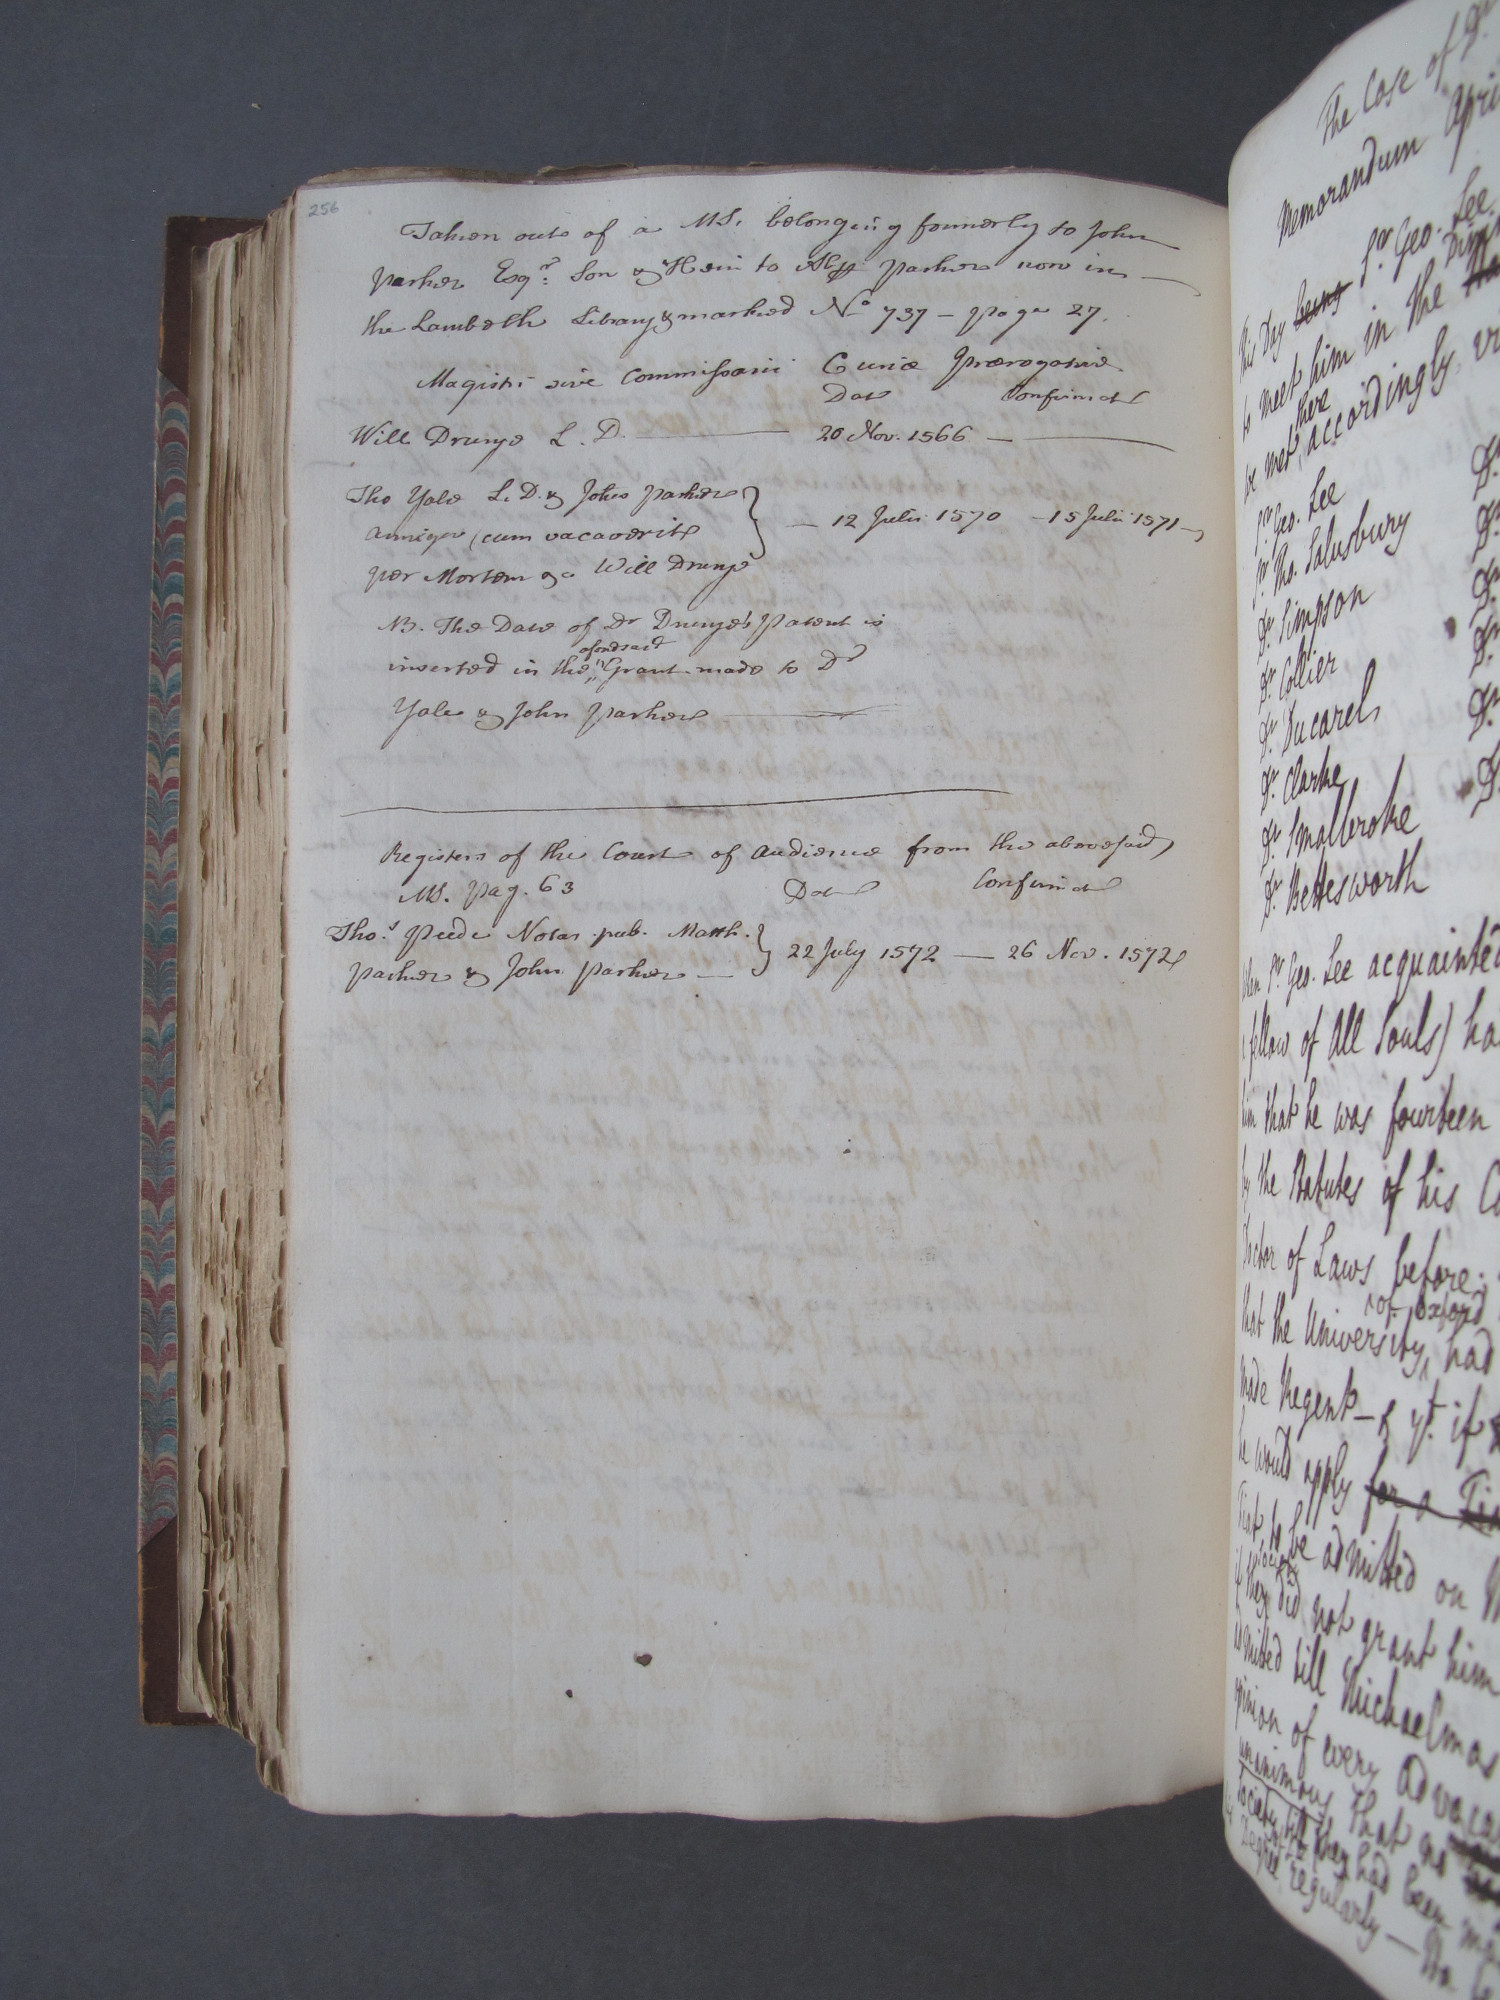 256
Taken out of a MS. belonging formerly to John
Parker Esqr. Son & Heir to ABp Parker now in
the Lambeth Library & marked No 737 - page 27.
Magistri sive Commissarii Curiæ Prærogativæ
Dat Confirmat
Will Drurye L. D. 20 Nov. 1566
Tho Yale L. D. & Johes Parker
armiger (cum vacaverit
per Mortem &c Will Drurye
— 12 Julii 1570 — 15 Julii 1571
NB. The Date of Dr Drurye's Patent is
aforesaid
inserted in the Grant made to Dr
Yale & John Parker
Registers of the Court of Audience from the abovesaid
MS. pag. 63 Dat Confirmat
Thos. Peede Notar. pub. Matth.
Parker & John Parker
22 July 1572 — 26 Nov. 1572
The Case of Dr
Memorandum Apri
This Day being Sr Geo. Lee
to meet him in the
there
be met accordingly vi
Sr Geo. Lee
Sr Tho. Salusbury
Dr Simpson
Dr Collier
Dr Ducarel
Dr Clarke
Dr Smalbroke
Dr Bettesworth
When Sr Geo. Lee acquainted
fellow of All Souls) ha
him that he was fourteen
by the Statutes of his Co
Doctor of Laws before
of Oxford
that the University had
made Regent - & yt if
he would apply for a
That to be admitted on
if they did not grant him
admitted till Michaelmas
opinion of every advoca
unanimous that no
Society till they had been
Degree regularly